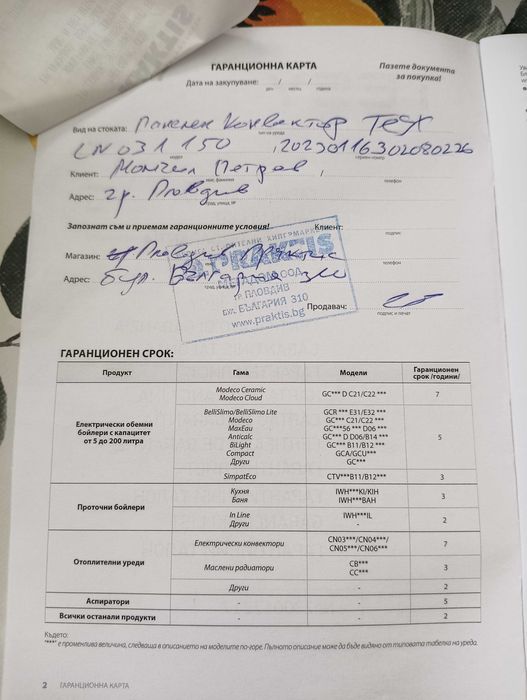 ГАРАНЦИОННА КАРТА
Пазете документа
за покупка!
Дата на закупуване: / /
ден месец година
Вид на стоката: Панелен Конвектор Тех
тип на уреда
CN031 150 , 20230116302080226
модел сериен номер
Клиент: Момчил Петров ,
име, фамилия телефон
Адрес: гр. Пловдив
град, улица, №
Запознат съм и приемам гаранционните условия! Клиент:
подпис
Магазин: гр Пловдив Практис
телефон
Адрес: бул. България 310
град, улица, №
PRAKTIS
ПЛОВДИВ
БУЛ. БЪЛГАРИЯ 310
www.praktis.bg
Продавач:
подпис и печат
ГАРАНЦИОНЕН СРОК:
Продукт Гама Модели Гаранционен
срок /години/
Електрически обемни
бойлери с капацитет
от 5 до 200 литра
Modeco Ceramic GC*** D C21/C22 *** 7
Modeco Cloud
BelliSlimo/BelliSlimo Lite GCR *** E31/E32 ***
Modeco GC*** C21/C22 ***
MaxEau GC***56 *** D06 ***
Anticalc GC*** D D06/B14 *** 5
BiLight GC*** B11/B12 ***
Compact GCA/GCU***
Други GC***
SimpatEco CTV***B11/B12*** 3
Проточни бойлери
Кухня IWH***KI/KIH 3
Баня IWH***BAH
In Line IWH***IL 2
Други -
Отоплителни уреди
Електрически конвектори CN03***/CN04***/ 7
CN05***/CN06***
Маслени радиатори CB*** 3
CC***
Други - 2
Аспиратори - - 5
Всички останали продукти - - 2
Където:
"***" е променлива величина, следваща в описанието на моделите по-горе. Пълното описание може да бъде видяно от типовата табелка на уреда.
2 ГАРАНЦИОННА КАРТА